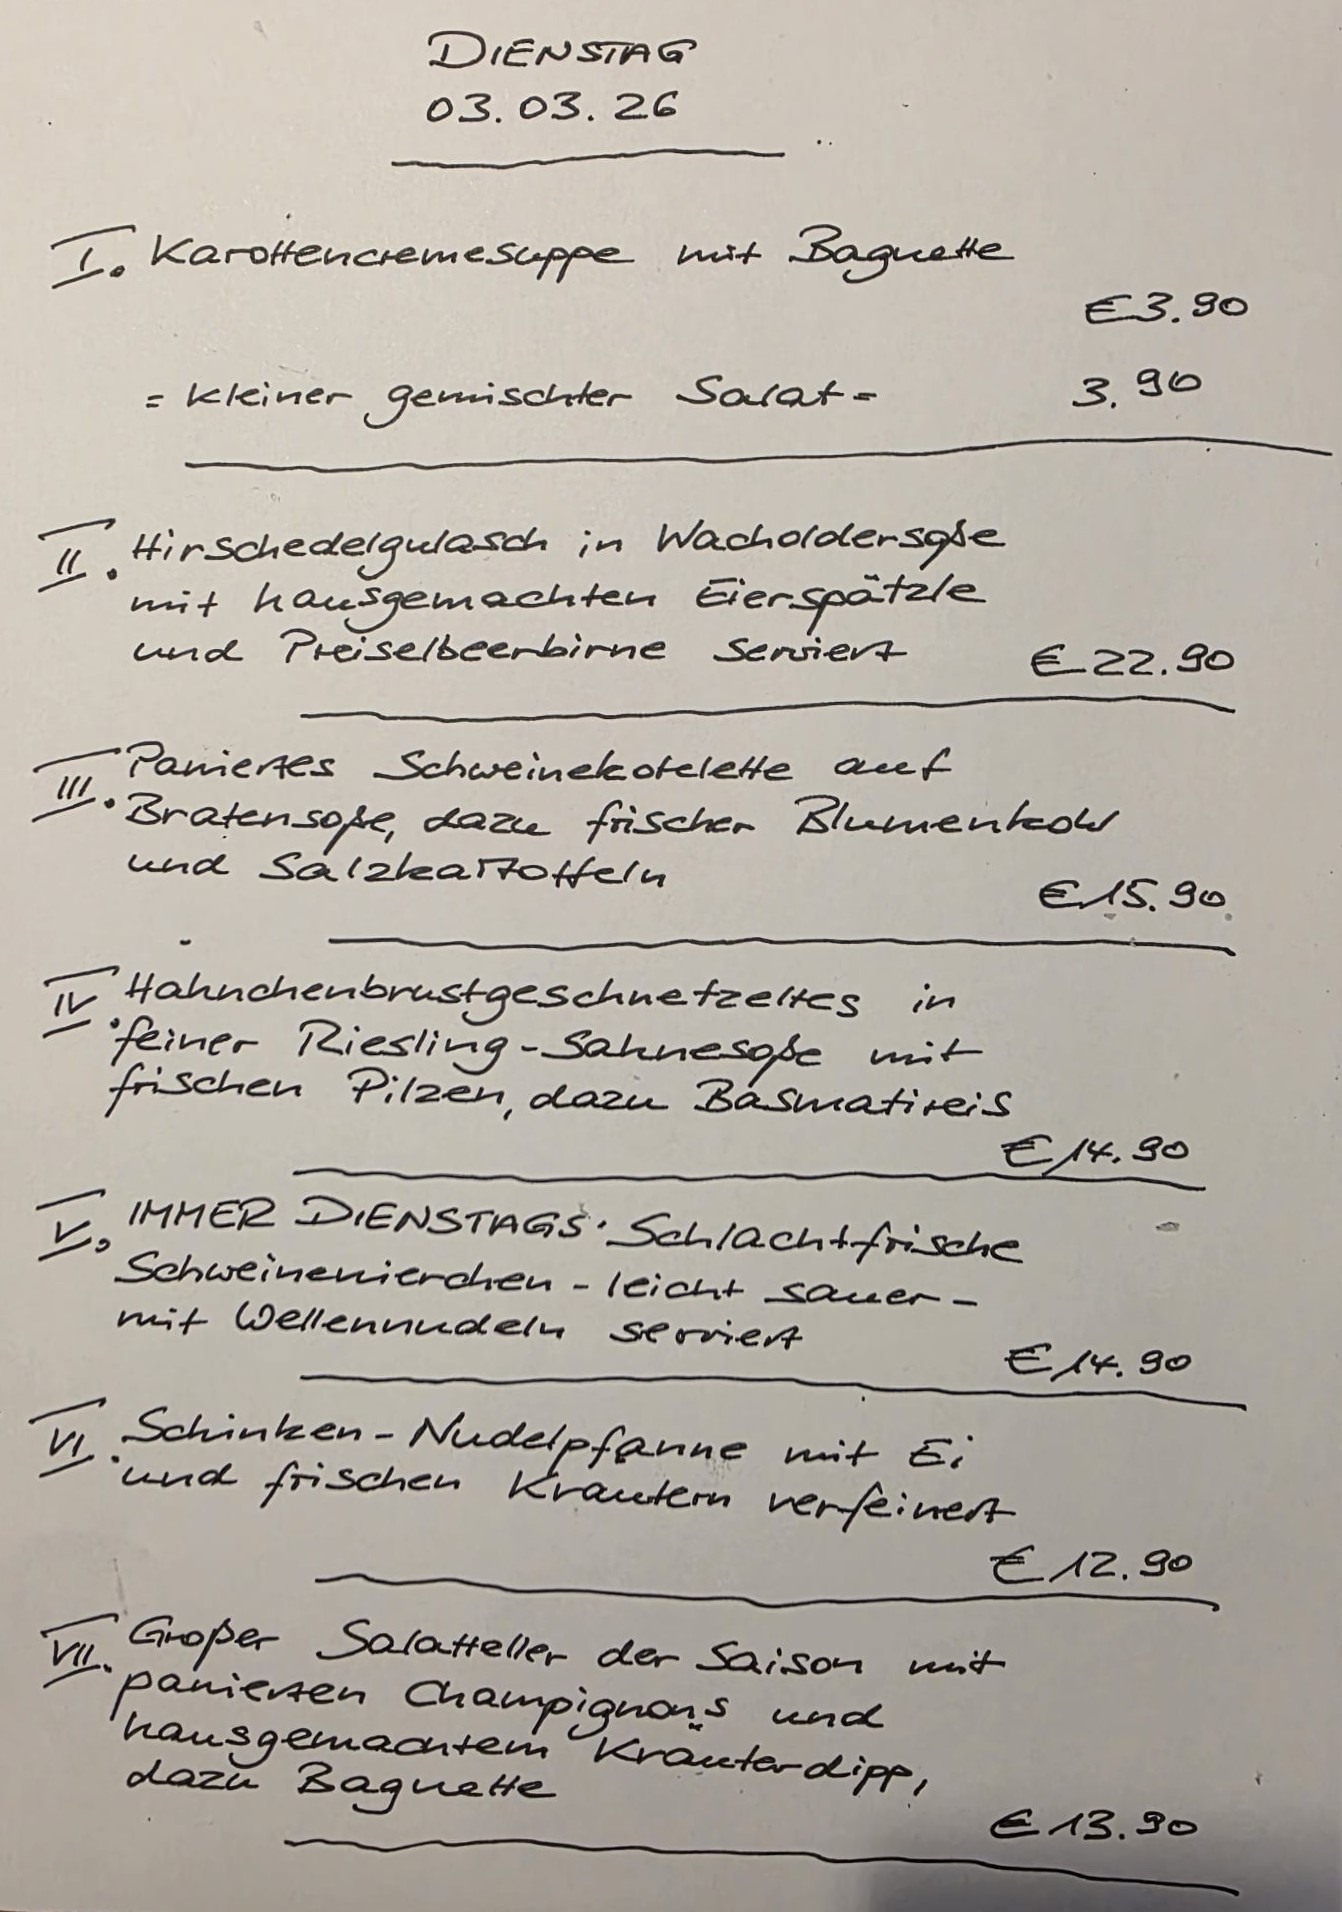 DIENSTAG
03.03.26
I. Karottencremesuppe mit Baguette
€3.90
= kleiner gemischter Salat = 3.90
II. Hirschedelgulasch in Wacholdersoße
mit hausgemachten Eierspätzle
und Preiselbeerbirne serviert €22.90
III. Paniertes Schweinekotelette auf
Bratensoße, dazu frischer Blumenkohl
und Salzkartoffeln
€15.90
IV. Hahnchenbrustgeschnetzeltes in
feiner Riesling-Sahnesoße mit
frischen Pilzen, dazu Basmatireis
€14.90
V. IMMER DIENSTAGS: Schlachtfrische
Schweinenierchen - leicht sauer -
mit Wellennudeln serviert
€14.90
VI. Schinken-Nudelpfanne mit Ei
und frischen Krautern verfeinert
€12.90
VII. Großer Salatteller der Saison mit
panierten Champignons und
hausgemachtem Kräuterdipp,
dazu Baguette
€13.90